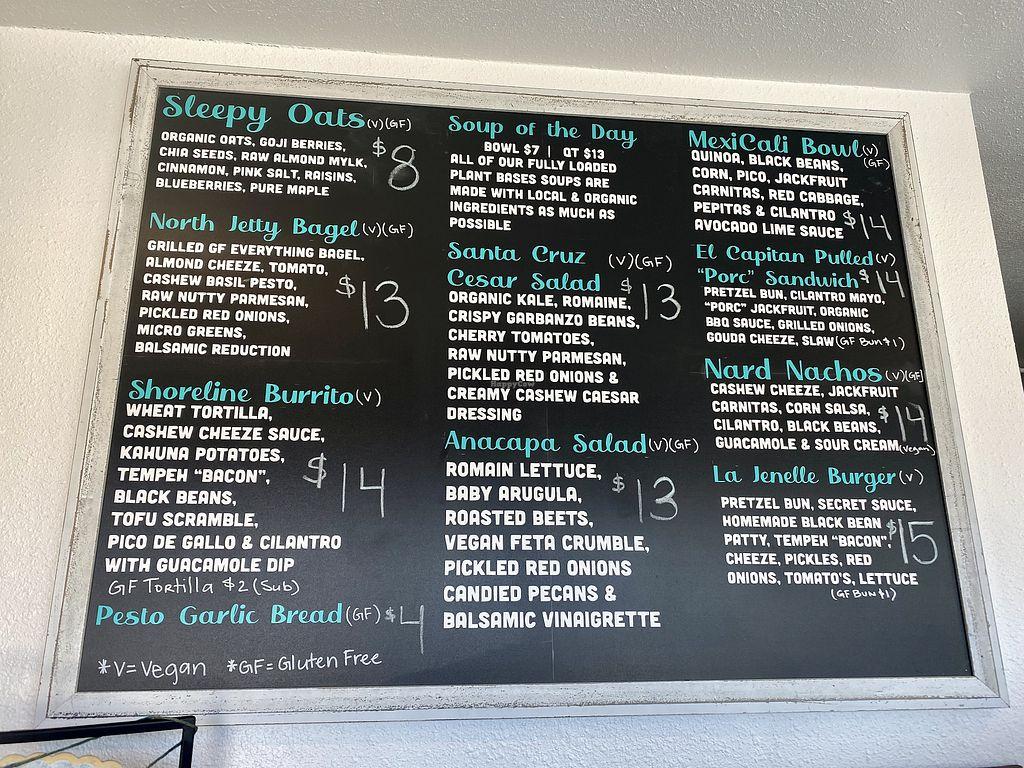 Sleepy Oats (V)(GF)
ORGANIC OATS, GOJI BERRIES,
CHIA SEEDS, RAW ALMOND MYLK,
CINNAMON, PINK SALT, RAISINS,
BLUEBERRIES, PURE MAPLE
$8
North Jetty Bagel (V)(GF)
GRILLED GF EVERYTHING BAGEL,
ALMOND CHEEZE, TOMATO,
CASHEW BASIL PESTO,
RAW NUTTY PARMESAN,
PICKLED RED ONIONS,
MICRO GREENS,
BALSAMIC REDUCTION
$13
Shoreline Burrito (V)
WHEAT TORTILLA,
CASHEW CHEEZE SAUCE,
KAHUNA POTATOES,
TEMPEH "BACON",
BLACK BEANS,
TOFU SCRAMBLE,
PICO DE GALLO & CILANTRO
WITH GUACAMOLE DIP
$14
GF Tortilla $2 (Sub)
Pesto Garlic Bread (GF) $4
*V=Vegan *GF=Gluten Free
Soup of the Day
BOWL $7 | QT $13
ALL OF OUR FULLY LOADED
PLANT BASES SOUPS ARE
MADE WITH LOCAL & ORGANIC
INGREDIENTS AS MUCH AS
POSSIBLE
Santa Cruz (V)(GF)
Cesar Salad $13
ORGANIC KALE, ROMAINE,
CRISPY GARBANZO BEANS,
CHERRY TOMATOES,
RAW NUTTY PARMESAN,
PICKLED RED ONIONS &
CREAMY CASHEW CAESAR
DRESSING
HappyCow
Anacapa Salad (V)(GF)
ROMAIN LETTUCE,
BABY ARUGULA,
ROASTED BEETS,
VEGAN FETA CRUMBLE,
PICKLED RED ONIONS
CANDIED PECANS &
BALSAMIC VINAIGRETTE
$13
MexiCali Bowl (V)
(GF)
QUINOA, BLACK BEANS,
CORN, PICO, JACKFRUIT
CARNITAS, RED CABBAGE,
PEPITAS & CILANTRO
AVOCADO LIME SAUCE
$14
El Capitan Pulled (V)
"Porc" Sandwich $14
PRETZEL BUN, CILANTRO MAYO,
"PORC" JACKFRUIT, ORGANIC
BBQ SAUCE, GRILLED ONIONS,
GOUDA CHEEZE, SLAW (GF Bun $1)
Nard Nachos (V)(GF)
CASHEW CHEEZE, JACKFRUIT
CARNITAS, CORN SALSA,
CILANTRO, BLACK BEANS,
GUACAMOLE & SOUR CREAM (vegan)
$14
La Jenelle Burger (V)
PRETZEL BUN, SECRET SAUCE,
HOMEMADE BLACK BEAN
PATTY, TEMPEH "BACON",
CHEEZE, PICKLES, RED
ONIONS, TOMATO'S, LETTUCE
(GF Bun $1)
$15